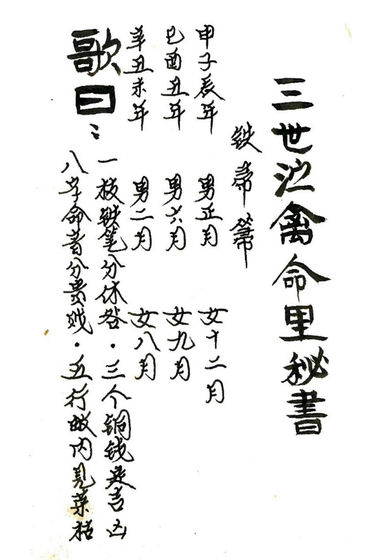 三世禽命里秘書
铁帚箒
甲子辰年 男正月 女十二月
巳酉丑年 男六月 女九月
辛丑未年 男二月 女八月
歌曰:
一枝铁笔分休咎.三个铜钱定吉凶
八字命者分贵贱.五行数内見荣枯